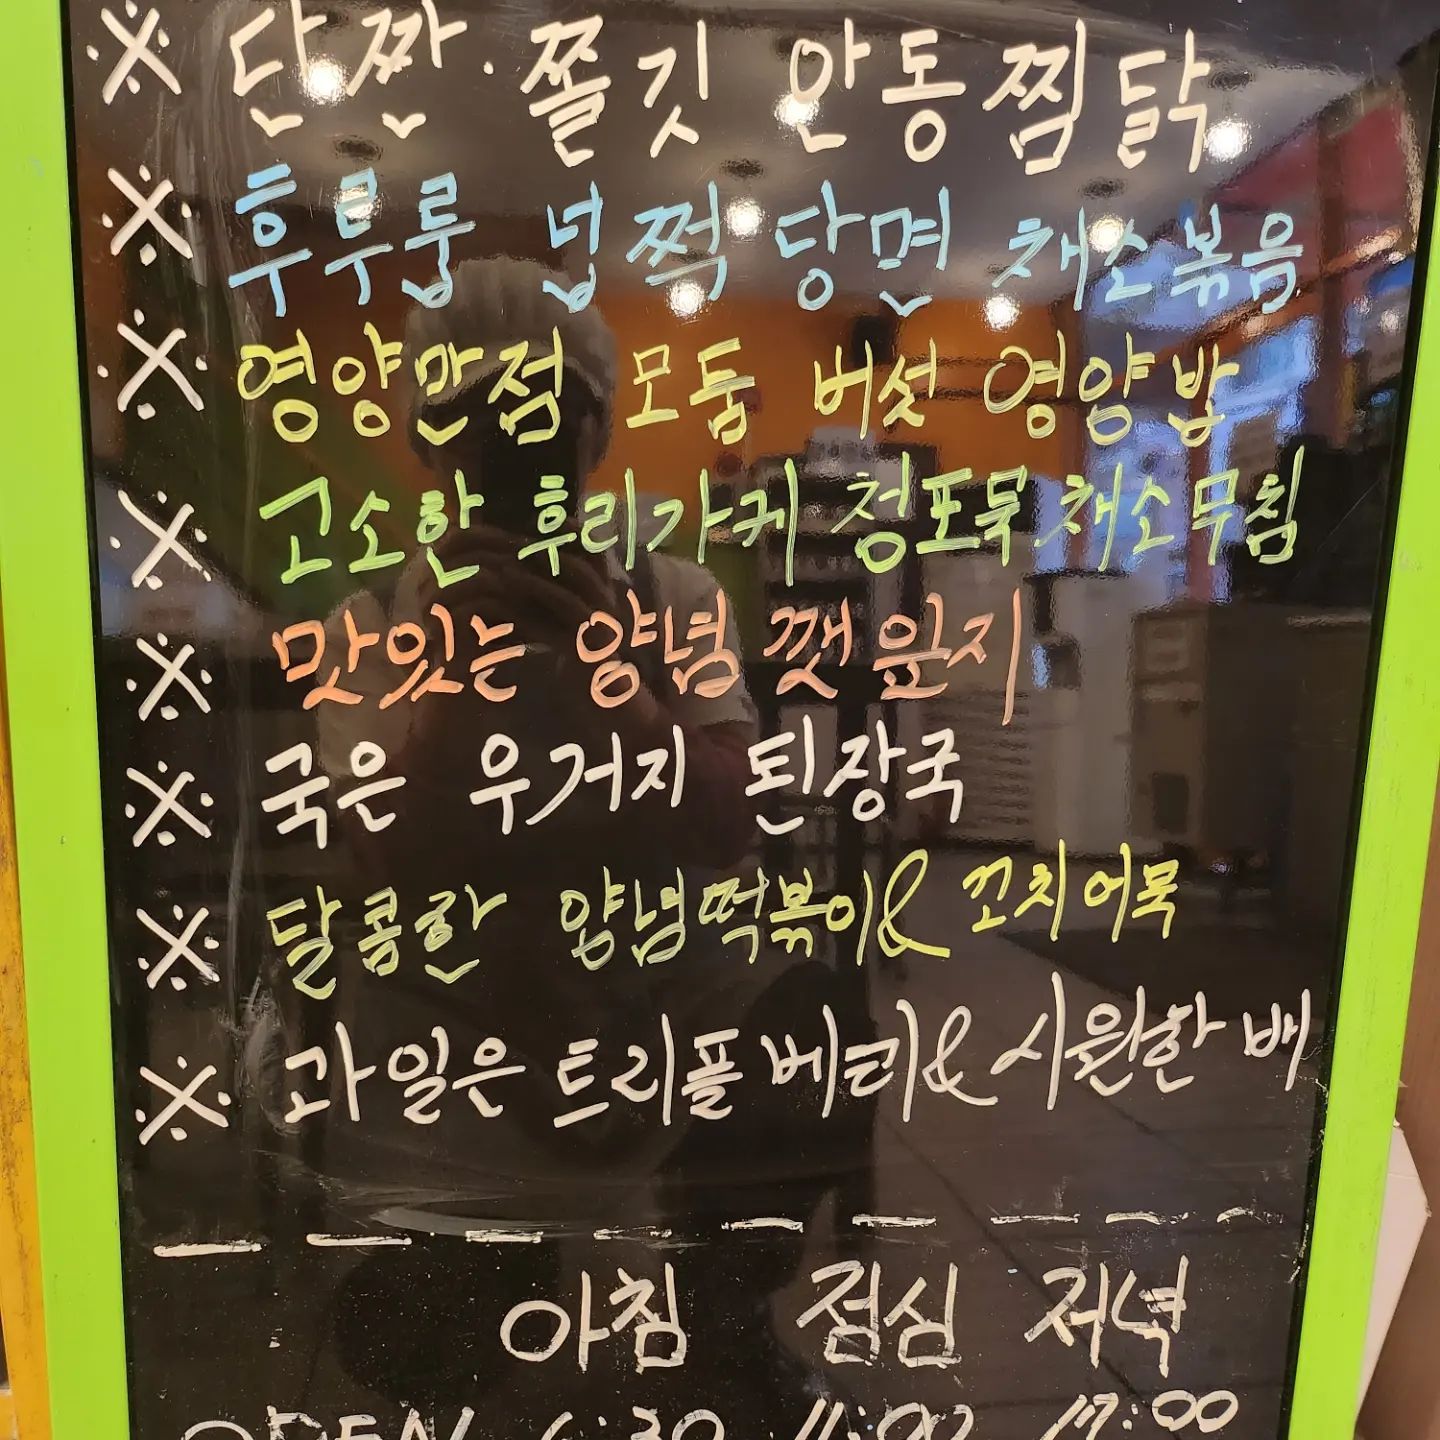 ※ 단짠·쫄깃 안동찜닭
※ 후루룹 넙쩍 당면 채소볶음
※ 영양만점 모둠 버섯 영양밥
※ 고소한 후리가케 청포묵 채소무침
※ 맛있는 양념 깻잎지
※ 국은 우거지 된장국
※ 달콤한 양념떡볶이& 꼬치어묵
※ 과일은 트리플 베리& 시원한 배
아침 점심 저녁
OPEN 6:30 11:00 17:00